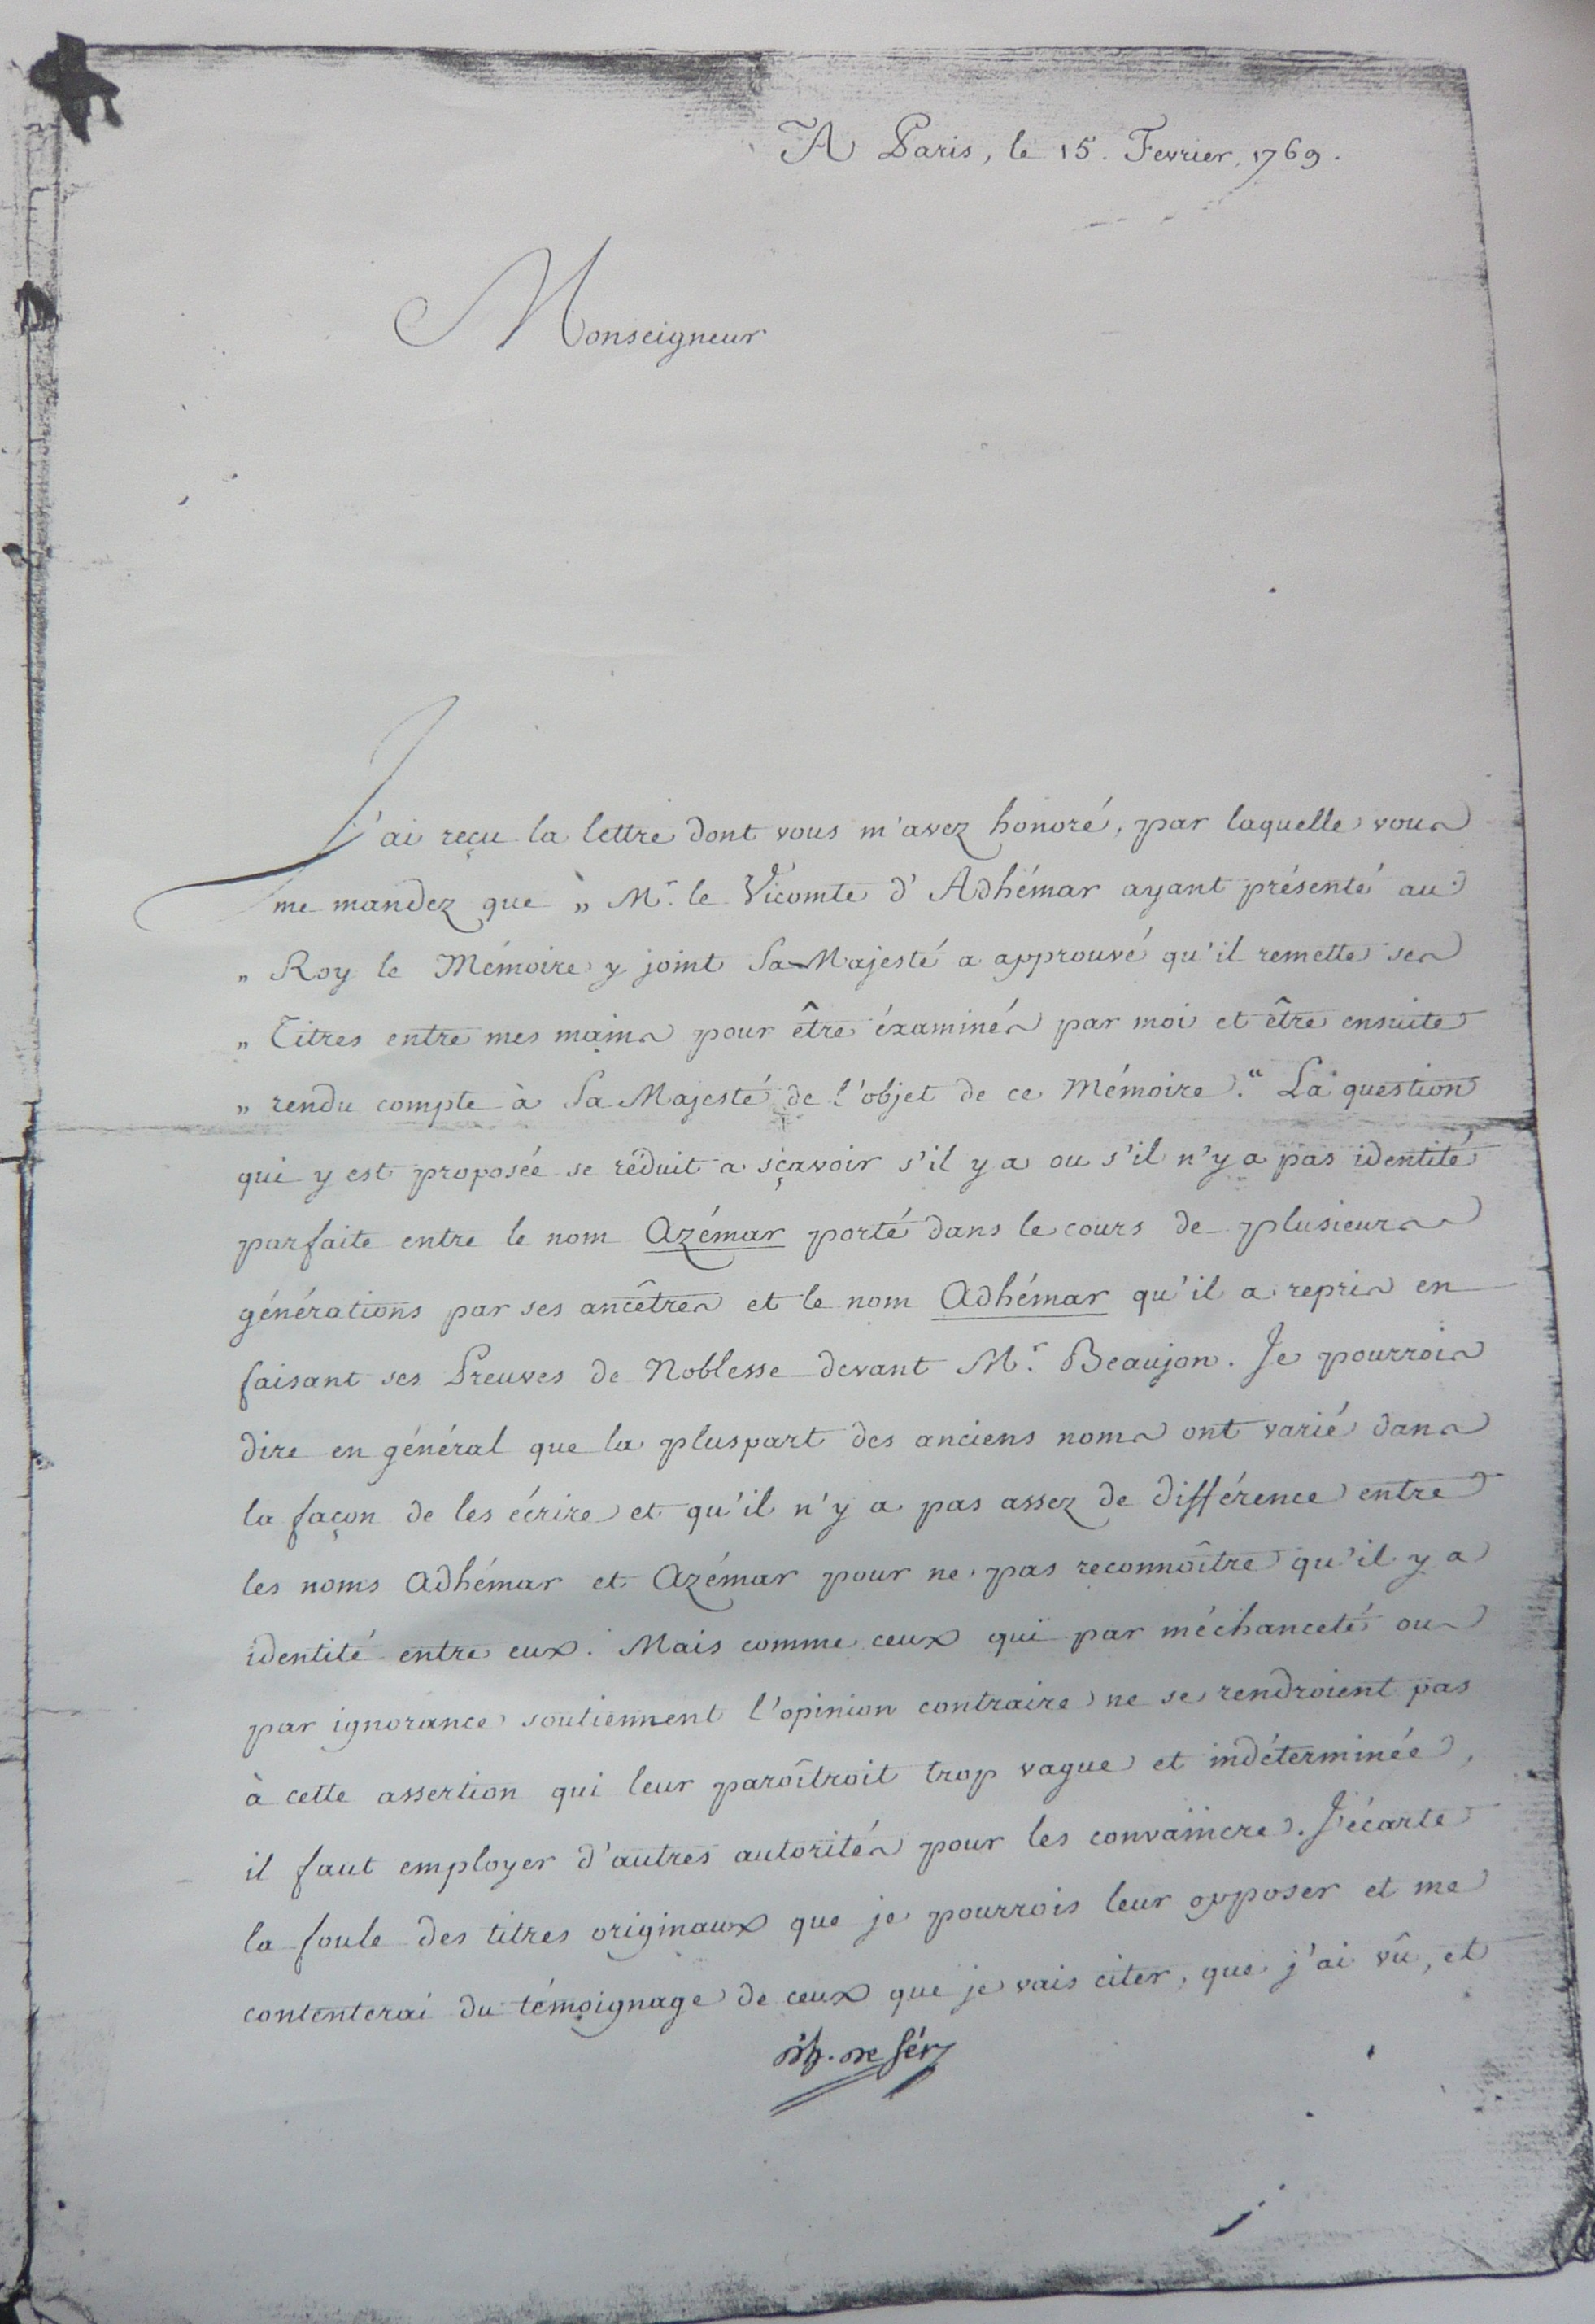 A Paris, le 15. Fevrier, 1769.
Monseigneur
J'ai reçu la lettre dont vous m'avez honoré, par laquelle vous
me mandez que „ Mr. le Vicomte d'Adhémar ayant présenté au
„ Roy le Mémoire y joint Sa Majesté a approuvé qu'il remette ses
„ Titres entre mes mains pour être éxaminés par moi et être ensuite
„ rendu compte à Sa Majesté de l'objet de ce Mémoire.“ La question
qui y est proposée se réduit a sçavoir s'il y a ou s'il n'y a pas identité
parfaite entre le nom Azémar porté dans le cours de plusieurs
générations par ses ancêtres et le nom Adhémar qu'il a repris en
faisant ses Preuves de Noblesse devant Mr. Beaujon. Je pourrois
dire en général que la pluspart des anciens noms ont varié dans
la façon de les écrire et qu'il n'y a pas assez de différence entre
les noms Adhémar et Azémar pour ne pas reconnoître qu'il y a
identité entre eux. Mais comme ceux qui par méchanceté ou
par ignorance soutiennent l'opinion contraire ne se rendroient pas
à cette assertion qui leur paroîtroit trop vague et indéterminée,
il faut employer d'autres autorités pour les convaincre. J'écarte
la foule des titres originaux que je pourrois leur opposer et me
contenterai du témoignage de ceux que je vais citer, que j'ai vû, et